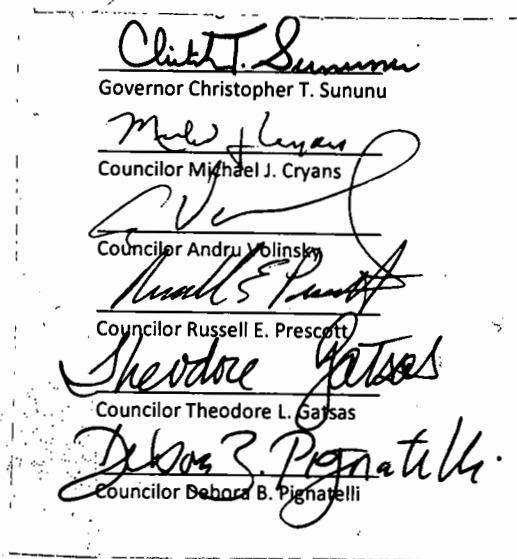 Christopher T. Sununu
Governor Christopher T. Sununu
Michael J Cryans
Councilor Michael J. Cryans
Councilor Andru Volinsky
Russell E Prescott
Councilor Russell E. Prescott
Theodore Gatsas
Councilor Theodore L. Gatsas
Debora B. Pignatelli
Councilor Debora B. Pignatelli